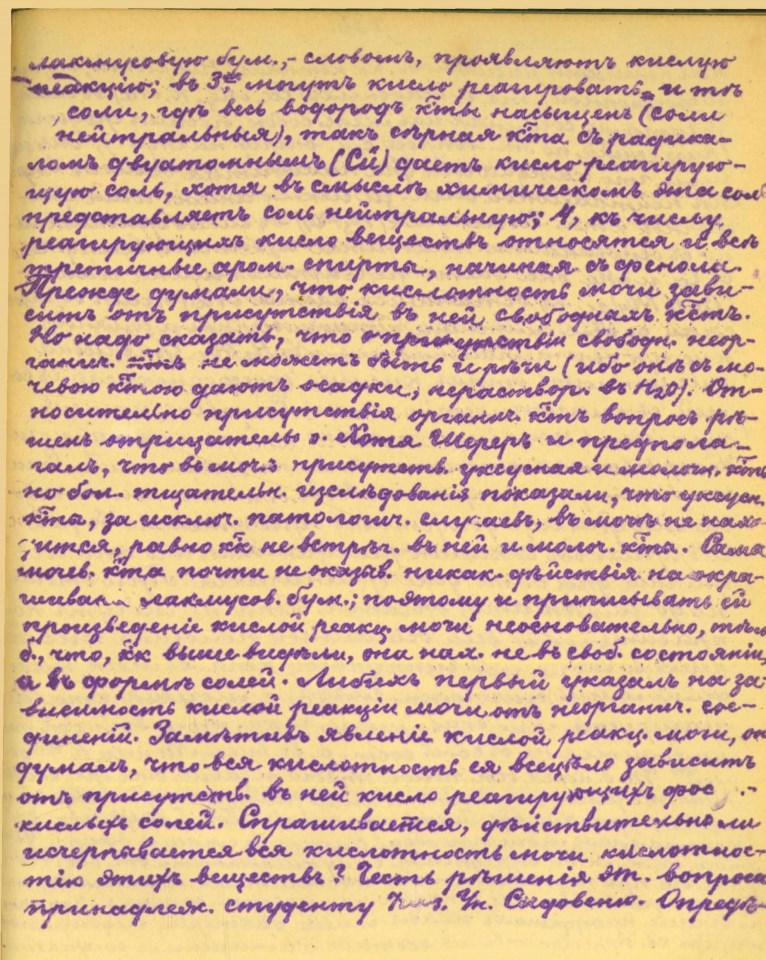 лакмусовую бум.,- словомъ, проявляютъ кислую
реакцію; въ 3х, могутъ кисло реагировать и тѣ
соли, гдѣ весь водородъ к͠ты насыщенъ (соли
нейтральныя), такъ сѣрная к͠та съ радика-
ломъ двуатомнымъ (Cü) даетъ кисло реагирую-
щую соль, хотя въ смыслѣ химическомъ эта соль
представляетъ соль нейтральную; 4, къ числу
реагирующихъ кисло веществъ относятся и всѣ
третичные аром. спирты, начиная съ фенола.
Прежде думали, что кислотность мочи зави-
ситъ отъ присутствія въ ней свободныхъ к͠тъ.
Но надо сказать, что о присутствіи свободн. неор-
ганич. к͠тъ не можетъ быть и рѣчи (ибо онѣ съ мо-
чевою к͠тою даютъ осадки, нераствор. въ H2O). От-
носительно присутствія органич. к͠тъ вопросъ рѣ-
шенъ отрицательно. Хотя Шереръ и предпола-
галъ, что въ мочѣ присутств. уксусная и молочн. к͠ты
но бол. тщательн. изслѣдованія показали, что уксусн.
к͠та, за исключ. патологич. случаевъ, въ мочѣ не нахо-
дится, равно к͠к не встрѣч. въ ней и молоч. к͠та. Сама
мочев. к͠та почти не оказыв. никак. дѣйствія на окра-
шиван. лакмусов. бум.; поэтому и приписывать ей
произведеніе кислой реакц. мочи неосновательно, тѣмъ
б., что, к͠к выше видѣли, она нах. не въ своб. состояніи,
а въ формѣ солей. Либихъ первый указалъ на за-
висимость кислой реакціи мочи отъ неорганич. сое-
диненій. Замѣтивъ явленіе кислой реакц. мочи, онъ
думалъ, что вся кислотность ея всецѣло зависитъ
отъ присутств. въ ней кисло реагирующихъ фос-
кислыхъ солей. Спрашивается, дѣйствительно ли
исчерпывается вся кислотность мочи кислотнос-
тію этихъ веществъ? Честь рѣшенія эт. вопроса
принадлеж. студенту Ун. Опредѣ-